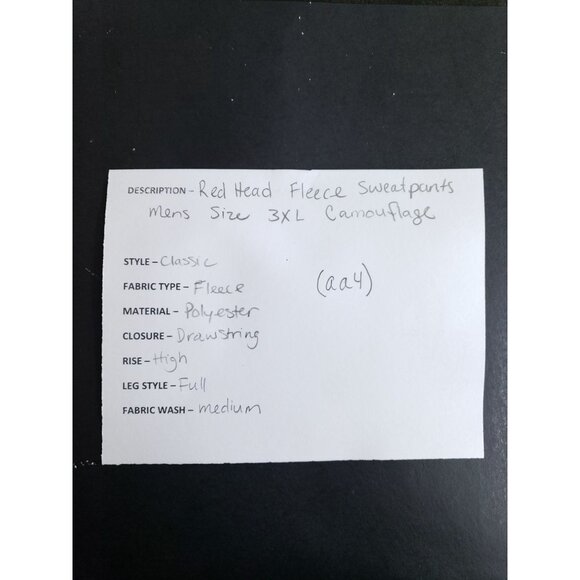 DESCRIPTION - Red Head Fleece Sweatpants
Mens Size 3XL Camouflage
STYLE - Classic
FABRIC TYPE - Fleece
(aa4)
MATERIAL - Polyester
CLOSURE - Drawstring
RISE - High
LEG STYLE - Full
FABRIC WASH - medium